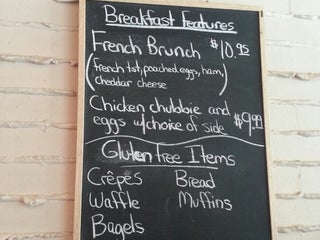 Breakfast Features
French Brunch $10.95
(french tst, poached eggs, ham,
cheddar cheese)
Chicken chubbie and
eggs w/choice of side $9.99
Gluten Free Items
Crêpes Bread
Waffle Muffins
Bagels